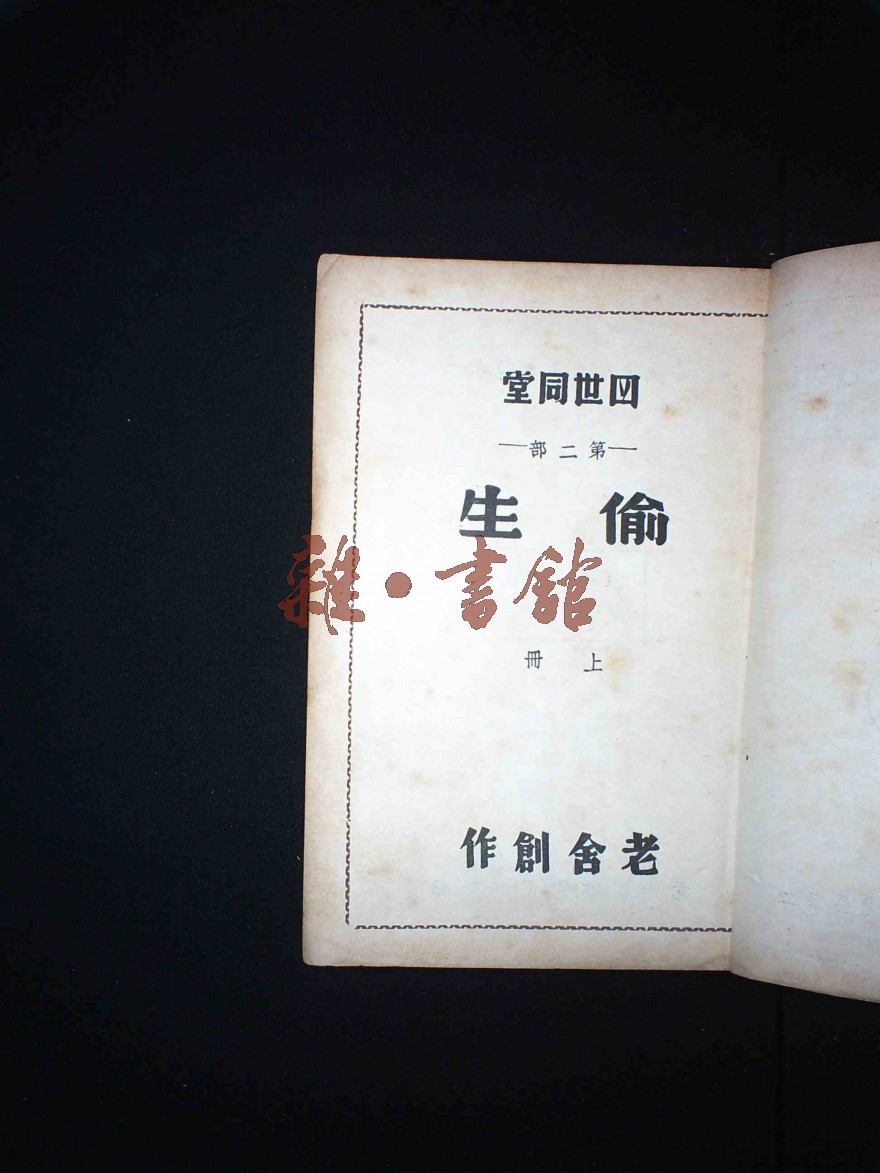 四世同堂
—第二部—
偷生
雜·書館
上冊
老舍創作